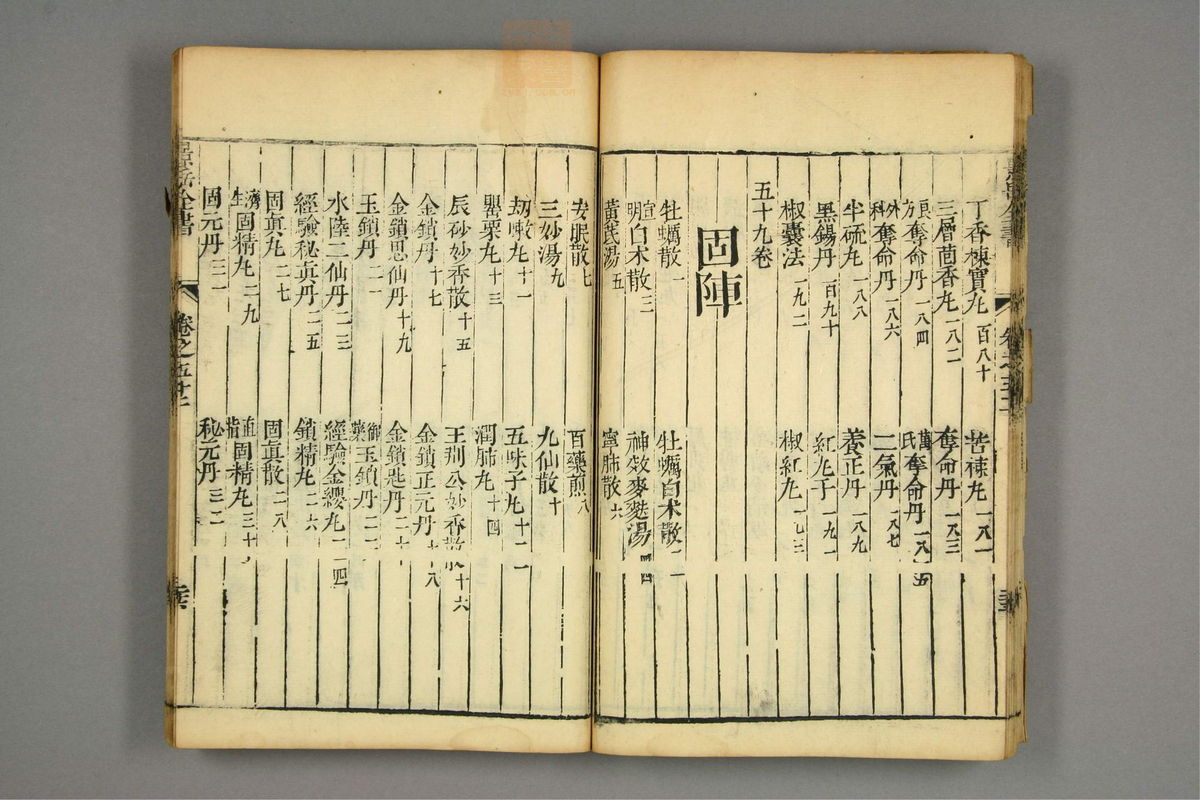 丁香楝實丸 百八十 苦楝丸 一八一
三層茴香丸 一八二 奪命丹 一八三
良方奪命丹 一八四 萬氏奪命丹 一八五
外科奪命丹 一八六 二氣丹 一八七
半硫丸 一八八 養正丹 一八九
黑錫丹 百九十 紅丸子 一九一
椒囊法 一九二 椒紅丸 一九三
五十九卷
固陣
牡蠣散 一 牡蠣白术散 二
宣明白术散 三 神效麥麩湯 四
黃芪湯 五 寧肺散 六
安眠散 七 百藥煎 八
三妙湯 九 九仙散 十
劫嗽丸 十一 五味子丸 十二
罌粟丸 十三 潤肺丸 十四
辰砂妙香散 十五 王荆公妙香散 十六
金鎖丹 十七 金鎖正元丹 十八
金鎖思仙丹 十九 金鎖匙丹 二十
玉鎖丹 二一 御藥玉鎖丹 二二
水陸二仙丹 二三 經驗金纓丸 二四
經驗秘真丹 二五 鎖精丸 二六
固眞丸 二七 固眞散 二八
濟生固精丸 二九 直指固精丸 三十
固元丹 三一 秘元丹 三二
景岳全書 卷之五十二